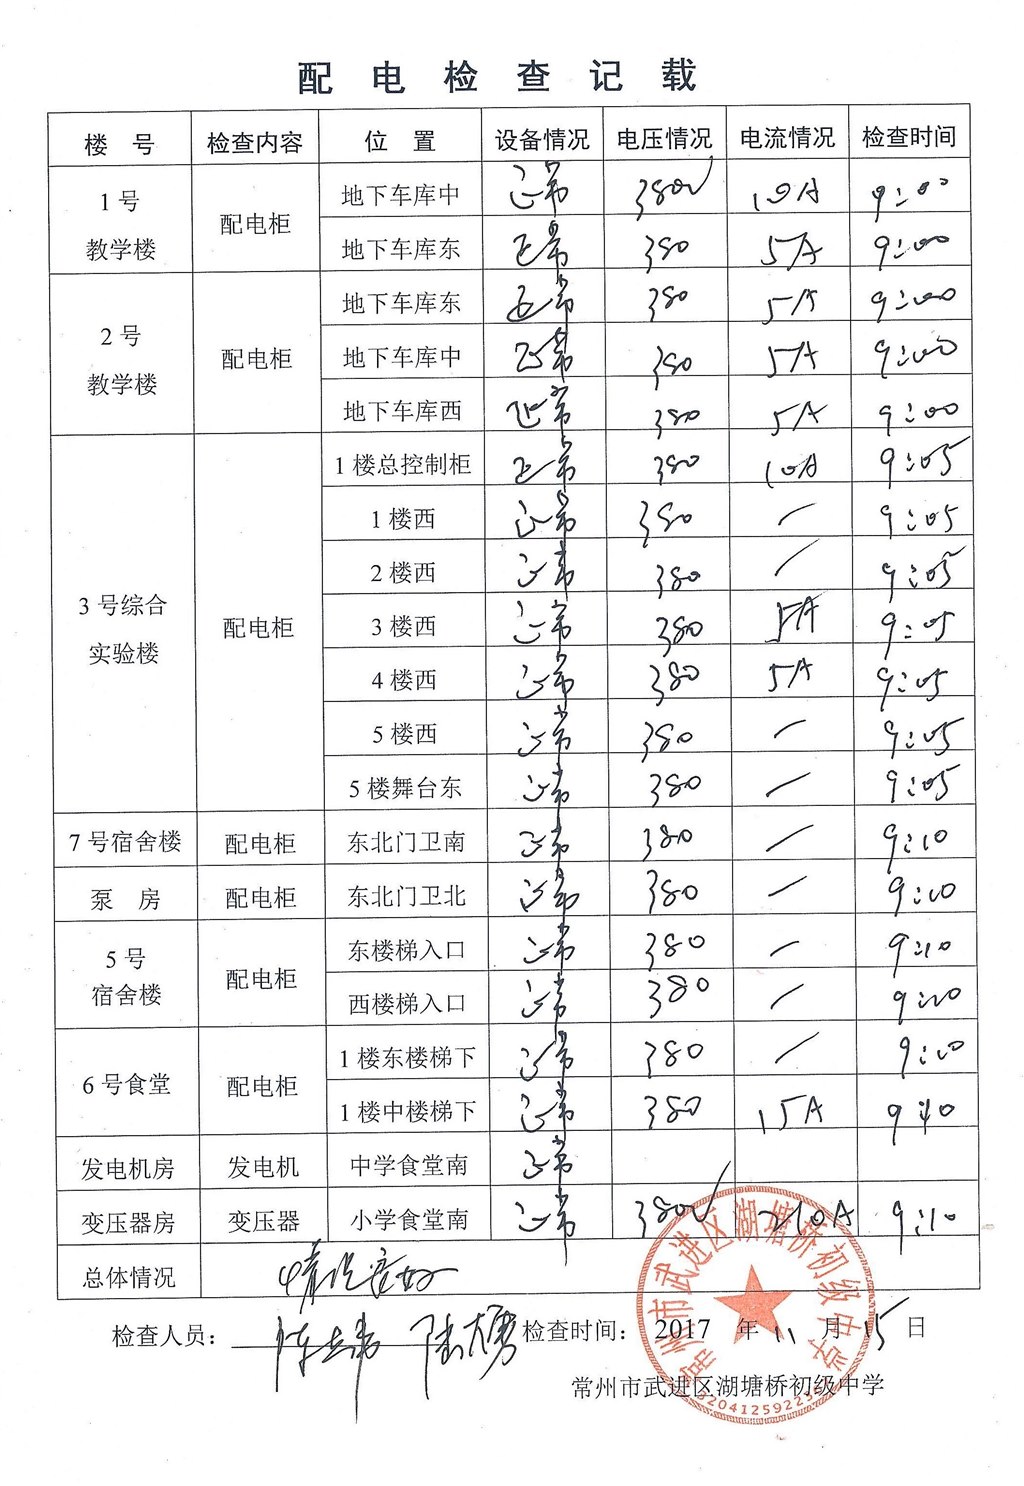 配电检查记载
楼号 检查内容 位置 设备情况 电压情况 电流情况 检查时间
1号教学楼 配电柜 地下车库中 正常 380V 10A 9:00
地下车库东 正常 380 5A 9:00
2号教学楼 配电柜 地下车库东 正常 380 5A 9:00
地下车库中 正常 380 5A 9:00
地下车库西 正常 380 5A 9:00
3号综合实验楼 配电柜 1楼总控制柜 正常 380 10A 9:05
1楼西 正常 380 / 9:05
2楼西 正常 380 / 9:05
3楼西 正常 380 5A 9:05
4楼西 正常 380 5A 9:05
5楼西 正常 380 / 9:05
5楼舞台东 正常 380 / 9:05
7号宿舍楼 配电柜 东北门卫南 正常 380 / 9:10
泵房 配电柜 东北门卫北 正常 380 / 9:10
5号宿舍楼 配电柜 东楼梯入口 正常 380 / 9:10
西楼梯入口 正常 380 / 9:10
6号食堂 配电柜 1楼东楼梯下 正常 380 / 9:10
1楼中楼梯下 正常 380 15A 9:10
发电机房 发电机 中学食堂南 正常
变压器房 变压器 小学食堂南 正常 380V 210A 9:10
总体情况 情况良好
检查人员： 检查时间：2017年11月15日
常州市武进区湖塘桥初级中学
常州市武进区湖塘桥初级中学